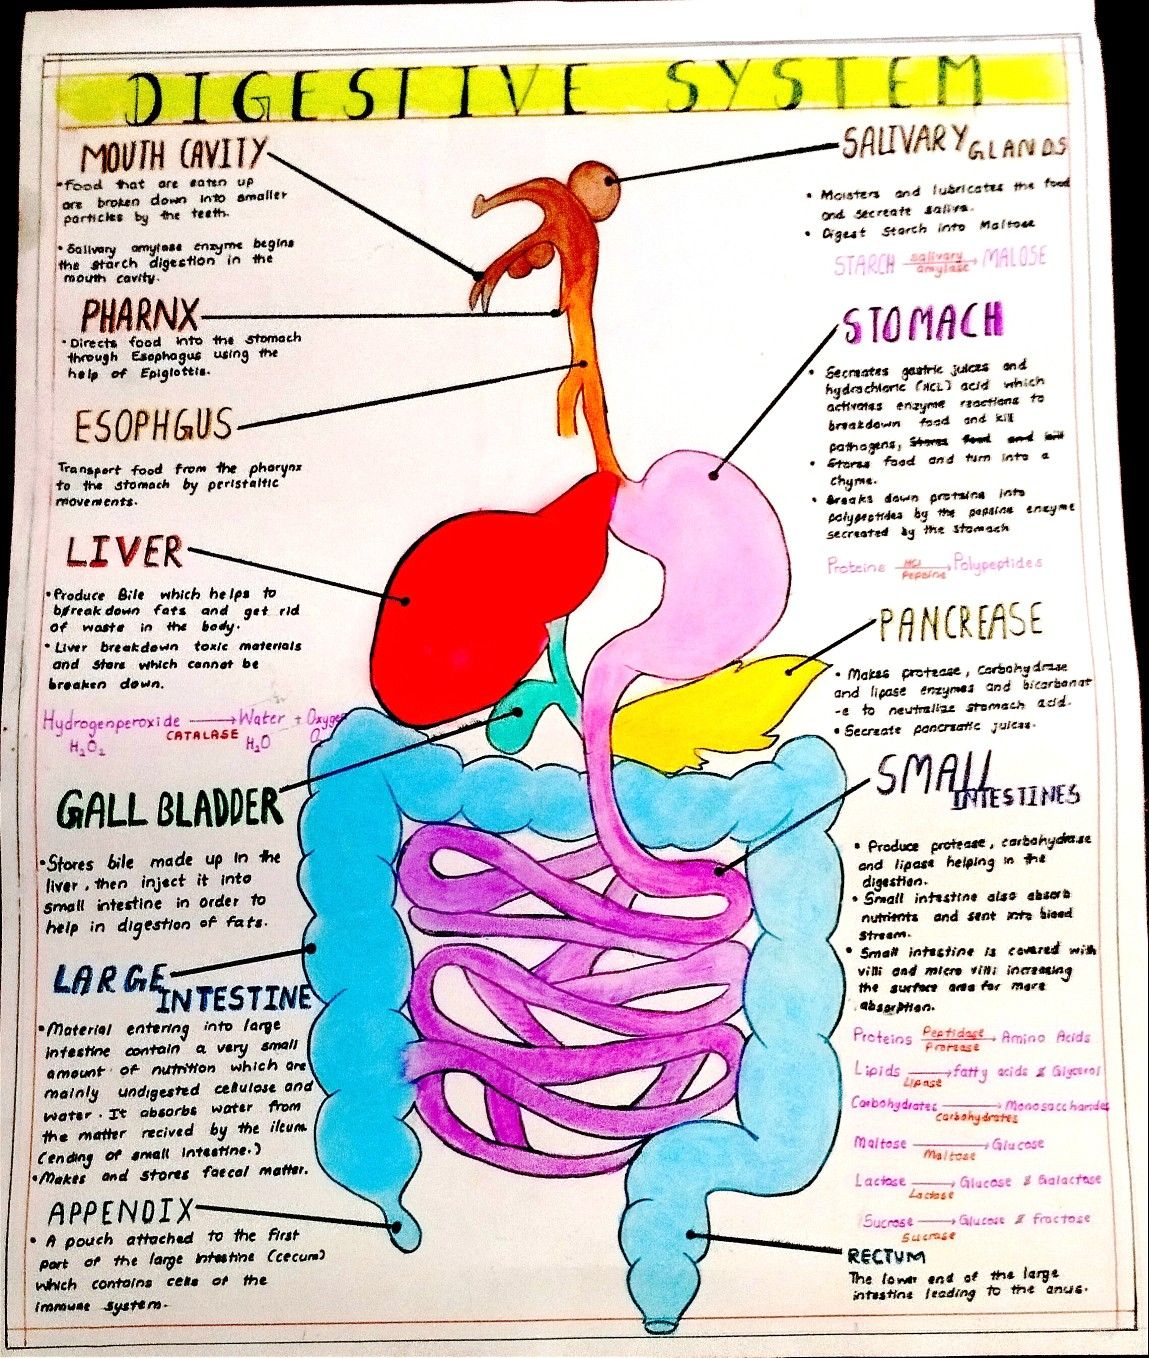 DIGESTIVE SYSTEM
MOUTH CAVITY
•Food that are eaten up
are broken down into smaller
particles by the teeth.
•Salivary amylase enzyme begins
the starch digestion in the
mouth cavity.
PHARNX
•Directs food into the stomach
through Esophagus using the
help of Epiglottis.
ESOPHGUS
Transport food from the pharynx
to the stomach by peristaltic
movements.
LIVER
•Produce Bile which helps to
breakdown fats and get rid
of waste in the body.
•Liver breakdown toxic materials
and store which cannot be
breaken down.
Hydrogenperoxide → Water + Oxygen
CATALASE
H₂O₂ H₂O
GALL BLADDER
•Stores bile made up in the
liver, then inject it into
small intestine in order to
help in digestion of fats.
LARGE
INTESTINE
•Material entering into large
intestine contain a very small
amount of nutrition which are
mainly undigested cellulose and
water. It absorbs water from
the matter recived by the ileum
(ending of small intestine.)
•Makes and stores faecal matter.
APPENDIX
• A pouch attached to the first
part of the large intestine (cecum)
which contains cells of the
immune system.
SALIVARY GLANDS
• Moisters and lubricates the food
and secreate saliva.
• Digest Starch into Maltose
STARCH salivary → MALOSE
amylase
STOMACH
• Secreates gastric juices and
hydrochloric (HCL) acid which
activates enzyme reactions to
breakdown food and kill
pathogens, Stores food and kill
• Stores food and turn into a
chyme.
• Breaks down proteins into
polypeptides by the pepsine enzyme
secreated by the stomach
Proteine HCl → Polypeptides
Pepsine
PANCREASE
• Makes protease, carbohydrase
and lipase enzymes and bicarbonat
-e to neutralize stomach acid.
• Secreate pancreatic juices.
SMALL
INTESTINES
• Produce protease, carbohydrase
and lipase helping in the
digestion.
• Small intestine also absorb
nutrients and sent into blood
stream.
• Small intestine is covered with
villi and micro villi increasing
the surface area for more
absorption.
Proteins Peptidase → Amino Acids
Protease
Lipids → fatty acids & Glycerol
Lipase
Carbohydrates → Monosaccharides
carbohydrates
Maltose → Glucose
Maltose
Lactose → Glucose & Galactose
Lactose
Sucrose → Glucose & fractose
Sucrase
RECTUM
The lower end of the large
intestine leading to the anus.